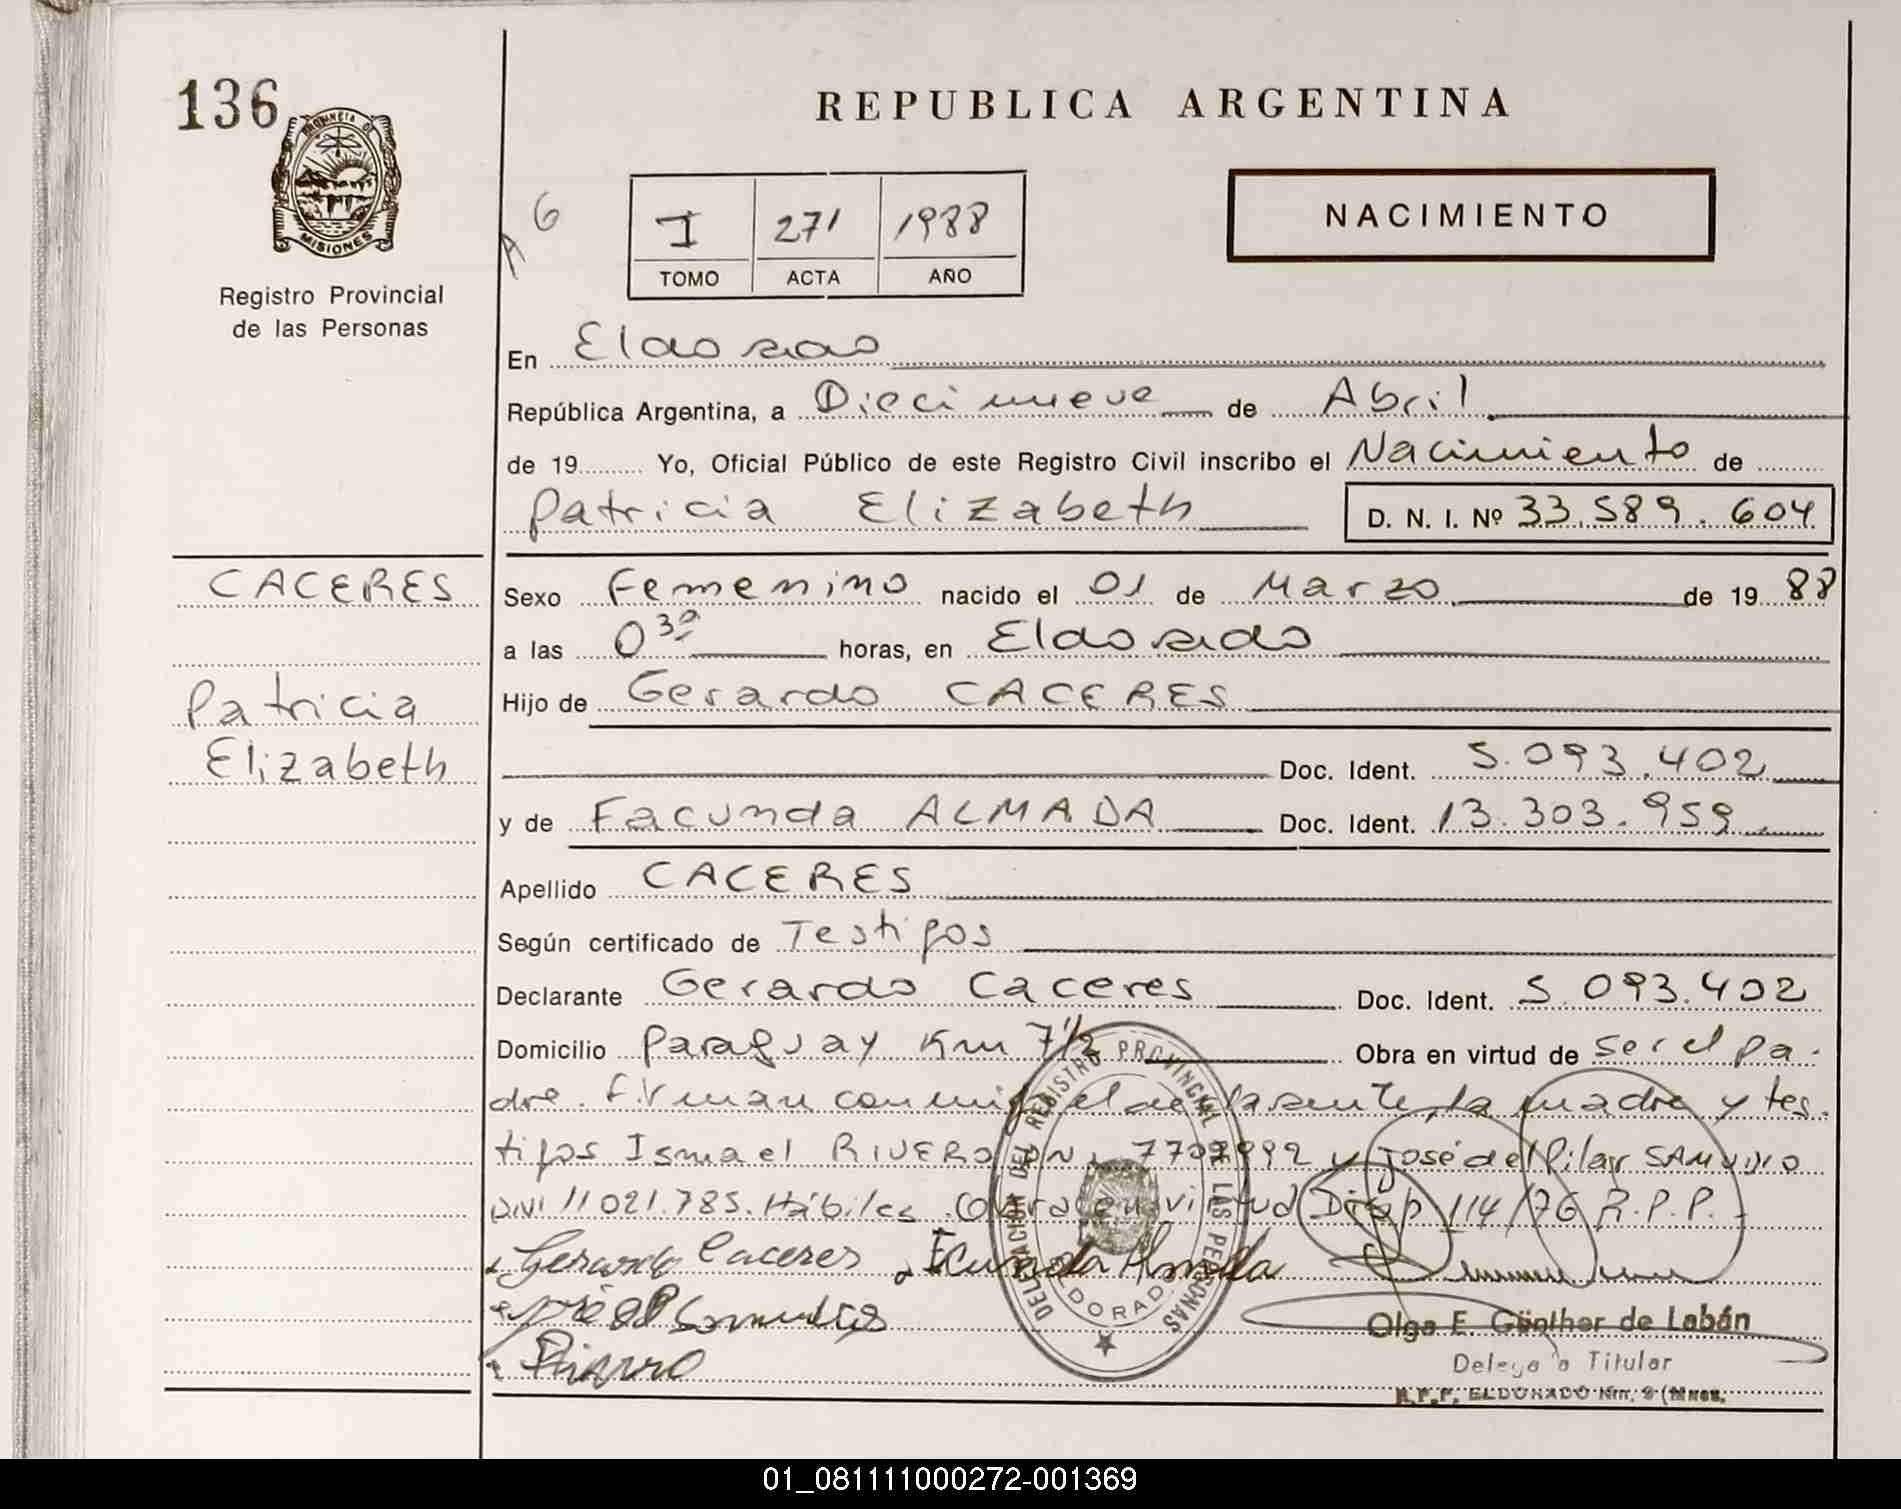 136
REPUBLICA ARGENTINA
PROVINCIA DE
MISIONES
Registro Provincial
de las Personas
A 6
I 271 1988
TOMO ACTA AÑO
NACIMIENTO
En Eldorado
República Argentina, a Diecinueve de Abril
de 19 Yo, Oficial Público de este Registro Civil inscribo el Nacimiento de
Patricia Elizabeth D. N. I. Nº 33.589.604
CACERES
Sexo Femenino nacido el 01 de Marzo de 19 88
a las 03º horas, en Eldorado
Patricia
Elizabeth
Hijo de Gerardo CACERES
Doc. Ident. 5.093.402
y de Facunda ALMADA Doc. Ident. 13.303.959
Apellido CACERES
Según certificado de Testigos
Declarante Gerardo Caceres Doc. Ident. 5.093.402
Domicilio Paraguay Km 7½ Obra en virtud de ser el pa-
dre. Firman conmigo el declarante, la madre y tes-
tigos Ismael RIVERO y José del Pilar SAMUDIO
DNI 11021.785. Hábiles. en virtud Disp 114/76 R.P.P.-
Gerardo Caceres Facunda Almada
DELEGACION DEL REGISTRO PROVINCIAL DE LAS PERSONAS
ELDORADO
Olga E. Günther de Labán
Delegada Titular
R.P.P. ELDORADO Km. 9 (Mnes.
01_081111000272-001369